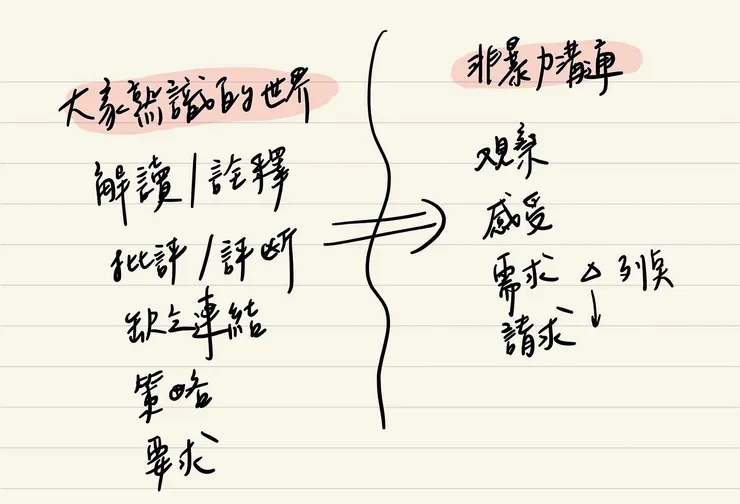 大家熟識的世界
解讀/詮釋
批評/評断
缺乏連結
策略
要求
非暴力溝通
观察
感受
需求 △ 列点
請求